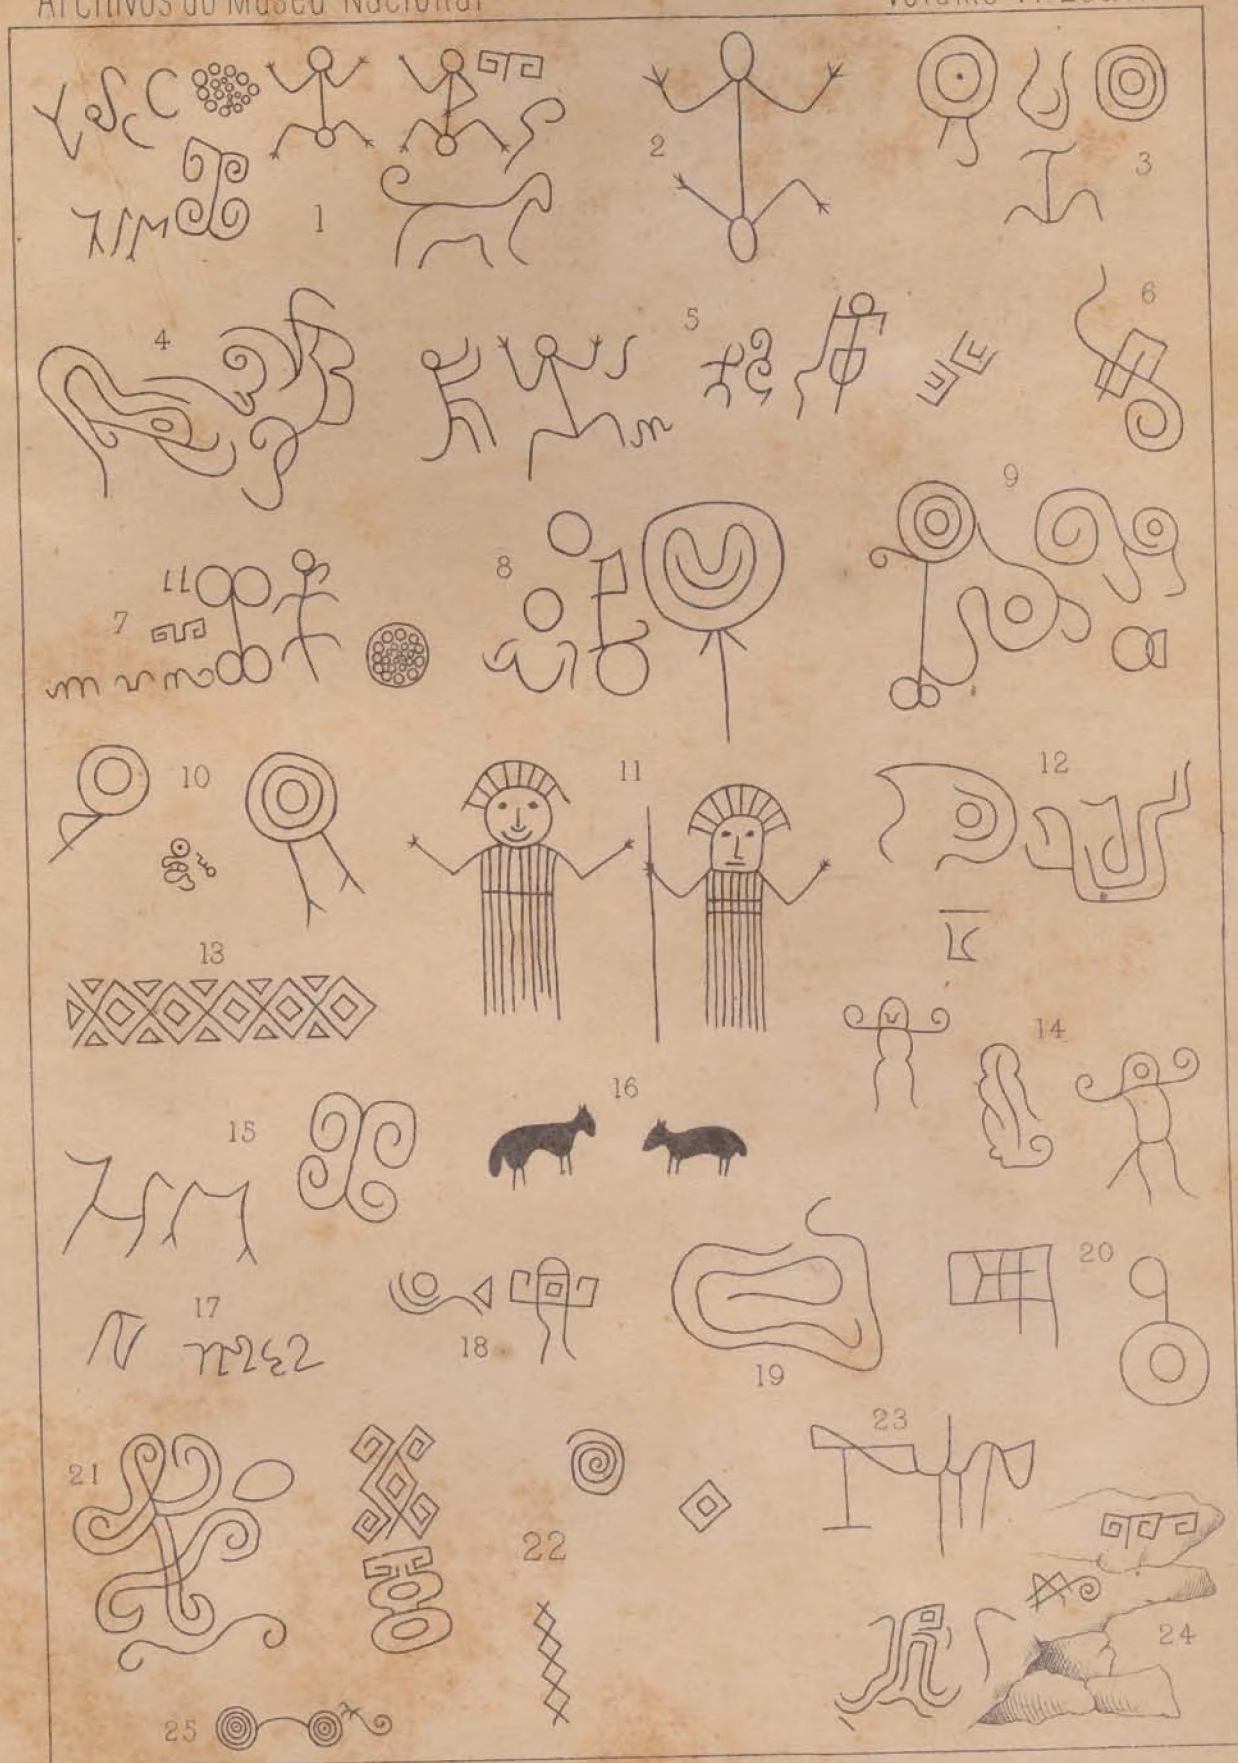 Archivos do Museu Nacional
Volume
1
2
3
4
5
6
7
8
9
10
11
12
13
14
15
16
17
18
19
20
21
22
23
24
25